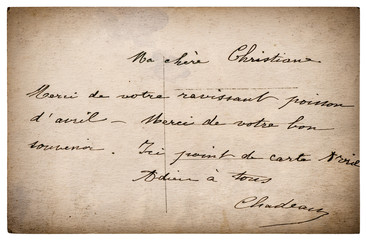 Ma chère Christiane
Merci de votre ravissant poisson
d'avril – Merci de votre bon
souvenir. Ici point de carte Avril
Adieu à tous